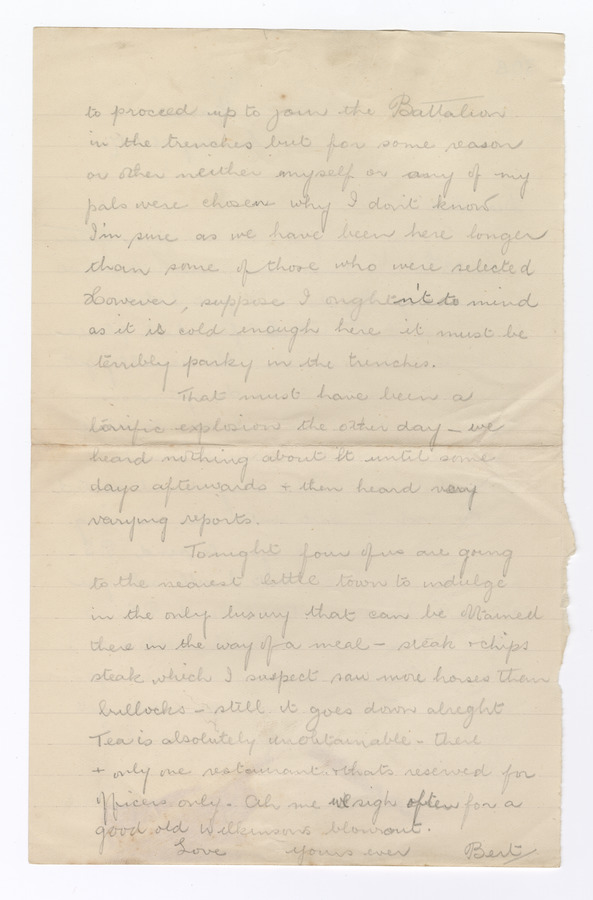 to proceed up to join the Battalion
in the trenches but for some reason
or other neither myself or any of my
pals were chosen why I don't know
I'm sure as we have been here longer
than some of those who were selected
However, suppose I oughtn't to mind
as it is cold enough here it must be
terribly parky in the trenches.
That must have been a
terrific explosion the other day – we
heard nothing about it until some
days afterwards + then heard very
varying reports.
Tonight four of us are going
to the nearest little town to indulge
in the only luxury that can be obtained
there in the way of a meal – steak + chips
steak which I suspect saw more horses than
bullocks – still it goes down alright
Tea is absolutely unobtainable – there
+ only one restaurant + thats reserved for
officers only. Ah me we sigh often for a
good old Wilkinsons blowout.
Love yours ever Bert